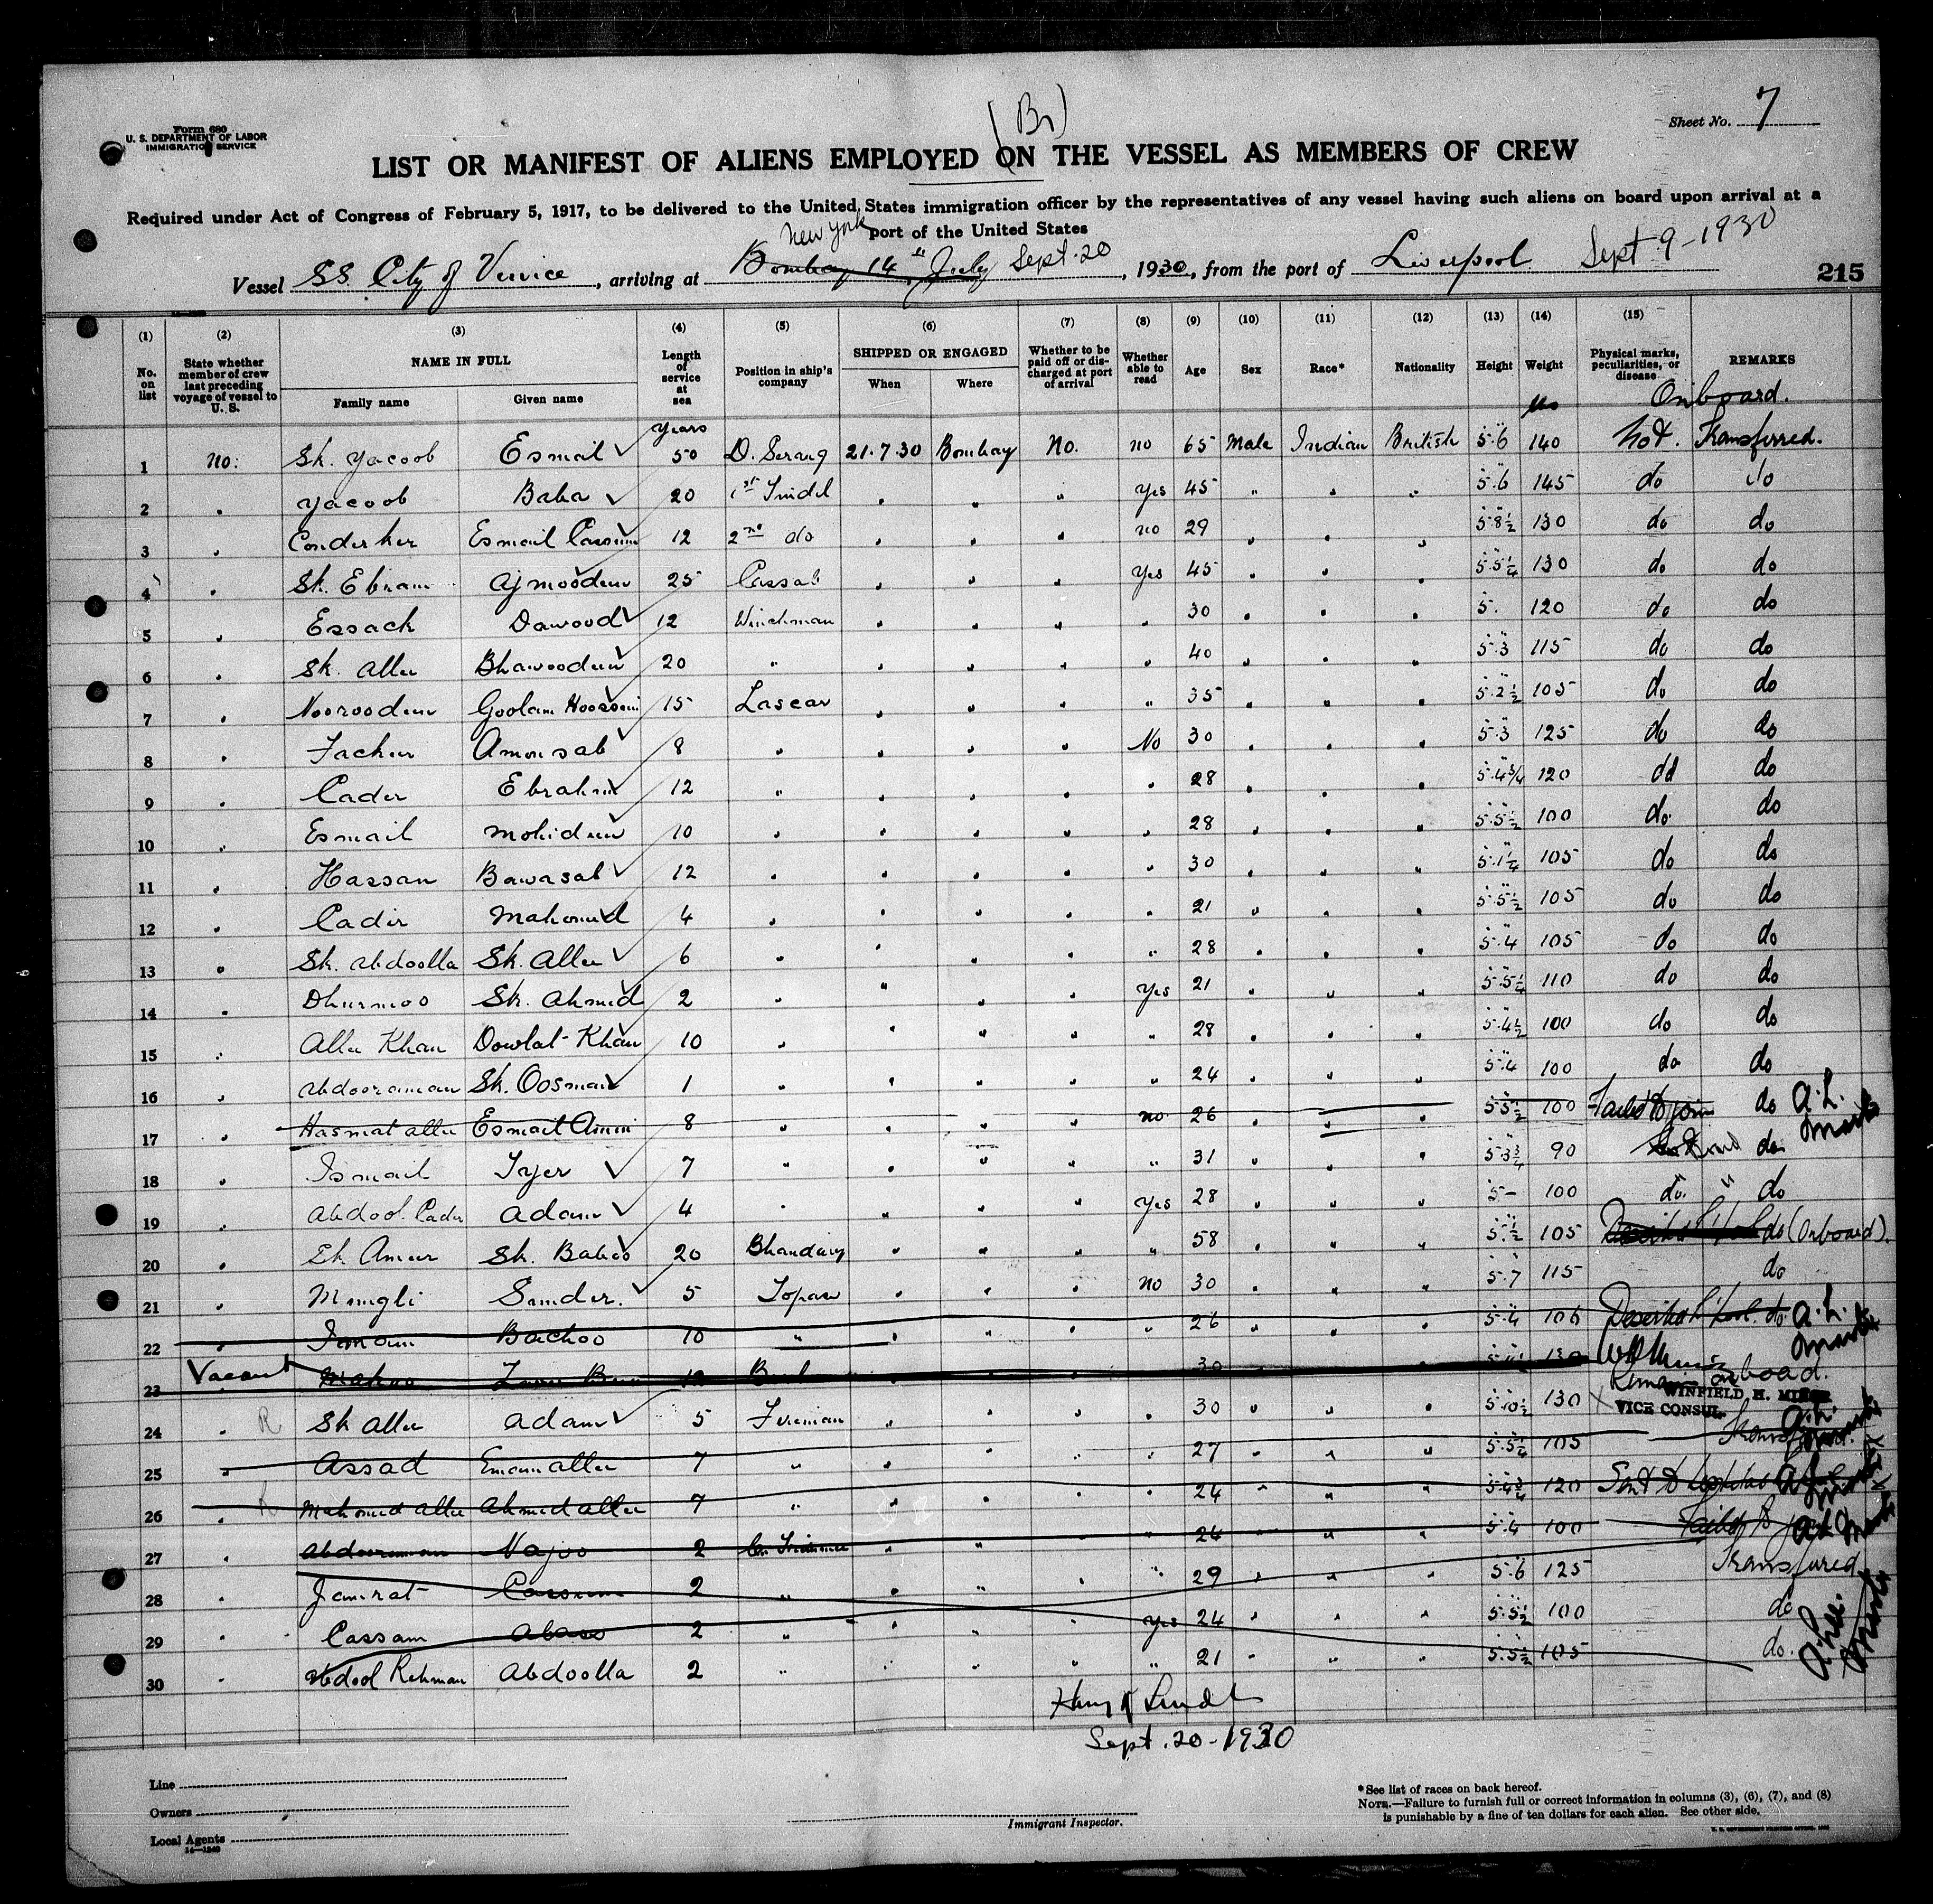 (Br)
Form 680
U. S. DEPARTMENT OF LABOR
IMMIGRATION SERVICE
Sheet No. 7
LIST OR MANIFEST OF ALIENS EMPLOYED ON THE VESSEL AS MEMBERS OF CREW
Required under Act of Congress of February 5, 1917, to be delivered to the United States immigration officer by the representatives of any vessel having such aliens on board upon arrival at a
port of the United States
New York
Vessel SS. City of Venice, arriving at Bombay 14th July Sept. 20, 1930, from the port of Liverpool Sept 9-1930
215
(1) (2) (3) (4) (5) (6) (7) (8) (9) (10) (11) (12) (13) (14) (15)
No. on list State whether member of crew last preceding voyage of vessel to U. S. NAME IN FULL Family name Given name Length of service at sea Position in ship's company SHIPPED OR ENGAGED When Where Whether to be paid off or discharged at port of arrival Whether able to read Age Sex Race* Nationality Height Weight Physical marks, peculiarities, or disease REMARKS
Onboard.
years
1 no. Sk. Yacoob Esmail 50 D. Serang 21.7.30 Bombay No. no 65 Male Indian British 5.6 140 Not. Transferred.
2 " Yacoob Baba 20 1st Tindel " " " Yes 45 " " " 5.6 145 do do
3 " Conderker Esmail Cassim 12 2nd do " " " no 29 " " " 5.8½ 130 do do
4 " Sk. Ebram Ajmoodeen 25 Cassab " " " Yes 45 " " " 5.5¼ 130 do do
5 " Essack Dawood 12 Winchman " " " " 30 " " " 5. 120 do do
6 " Sk. Allee Bhawoodeen 20 " " " " " 40 " " " 5.3 115 do do
7 " Nooroodeen Goolam Hoossein 15 Lascar " " " " 35 " " " 5.2½ 105 do do
8 " Fackir Amonsab 8 " " " " No 30 " " " 5.3 125 do do
9 " Cader Ebrahim 12 " " " " " 28 " " " 5.4¾ 120 do do
10 " Esmail Mohideen 10 " " " " " 28 " " " 5.5½ 100 do do
11 " Hassan Bawasab 12 " " " " " 30 " " " 5.1¼ 105 do do
12 " Cadir Mahomed 4 " " " " " 21 " " " 5.5½ 105 do do
13 " Sk. Abdoolla Sk. Allee 6 " " " " " 28 " " " 5.4 105 do do
14 " Dhurmoo Sk. Ahmed 2 " " " " Yes 21 " " " 5.5¼ 110 do do
15 " Allee Khan Dowlat Khan 10 " " " " " 28 " " " 5.4½ 100 do do
16 " Abdooraman Sk. Oosman 1 " " " " " 24 " " " 5.4 100 do do
17 " Hasmat allee Esmail Amin 8 " " " " no 26 " " " 5.5½ 100 Failed to join do A.L.
18 " Ismail Tyer 7 " " " " " 31 " " " 5.3¾ 90 do
19 " Abdool. Cader Adam 4 " " " " Yes 28 " " " 5- 100 do. " do
20 " Sk Ameer Sk. Baboo 20 Bhandary " " " " 58 " " " 105 do (Onboard).
21 " Mongli Sunder. 5 Topas " " " no 30 " " " 5.7 115 do
22 " Imam Bachoo 10 " " " " " 26 " " " 5.4 106 Deserted L'pool. do. A.L.
Vacant
23 30 130
Remain onboard.
WINFIELD H. MINOR
VICE CONSUL
24 " Sk allee Adam 5 Fireman " " " " 30 " " " 5.10½ 130
25 " Assad Emamallee 7 " " " " " 27 " " " 5.5¼ 105 Transferred.
26 " Mahomed allee Ahmed allee 7 " " " " " 24 " " " 5.4¾ 120 Sent to hospital
27 " Abdooraman Najoo 2 " " " " 24 " " " 5.4 100 Failed to join
28 " Jamrat Cassim 2 " " " " " 29 " " " 5.6 125 Transfered
29 " Cassam Abass 2 " " " " yes 24 " " " 5.5½ 100 do
30 " Abdool Rehman Abdoolla 2 " " " " " 21 " " " 5.5½ 105 do.
Sept. 20-1930
Line
Owners
Local Agents
14—1240
Immigrant Inspector.
*See list of races on back hereof.
NOTE.—Failure to furnish full or correct information in columns (3), (6), (7), and (8)
is punishable by a fine of ten dollars for each alien. See other side.